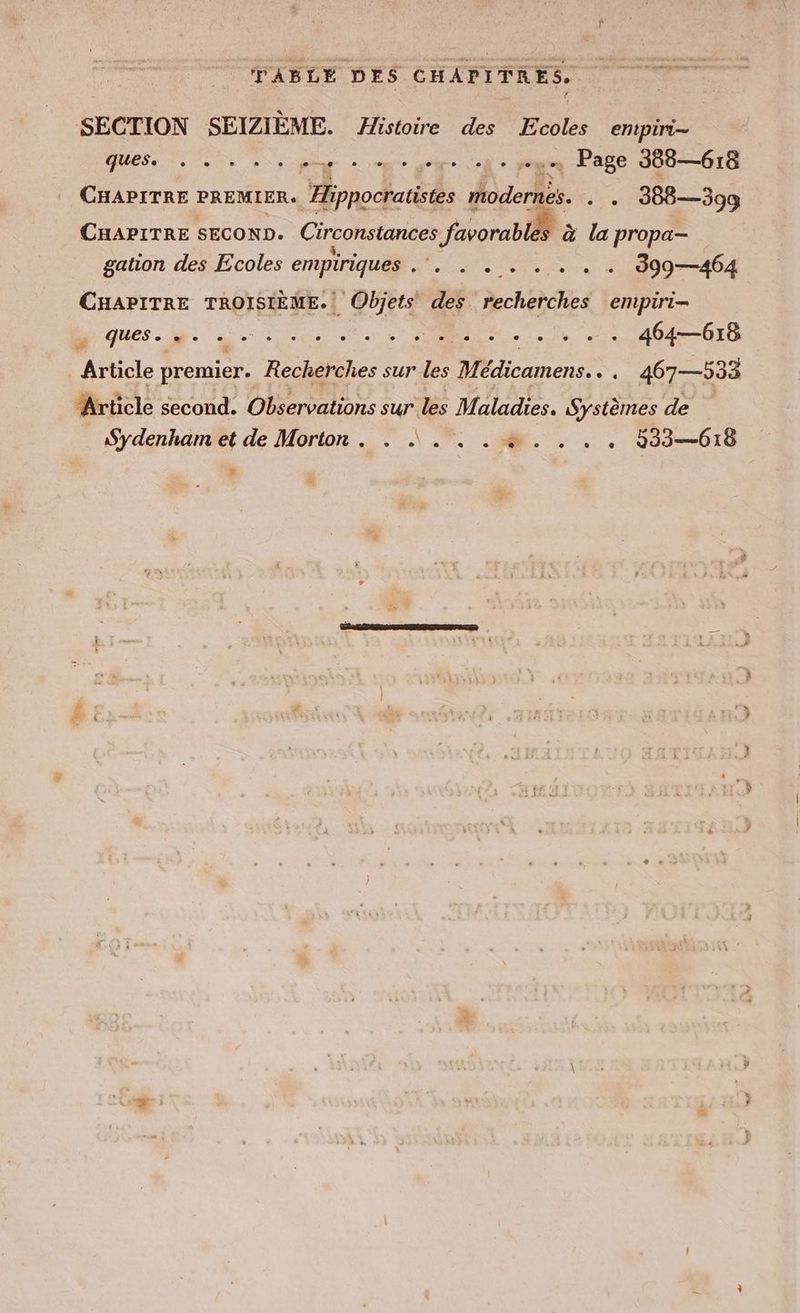 TABLE DES CHAPITRES.
SECTION SEIZIÈME. Histoire des Ecoles empiri-
ques. . . . . . . . . . . . Page 388—618
CHAPITRE PREMIER. Hippocratistes modernes. . . 388—399
CHAPITRE SECOND. Circonstances favorables à la propa-
gation des Ecoles empiriques . . . . . . . . . 399—464
CHAPITRE TROISIÈME. Objets des recherches empiri-
ques. . . . . . . . . . . . . . . . 464—618
Article premier. Recherches sur les Médicamens. . . 467—533
Article second. Observations sur les Maladies. Systèmes de
Sydenham et de Morton . . . . . . . . . . 533—618